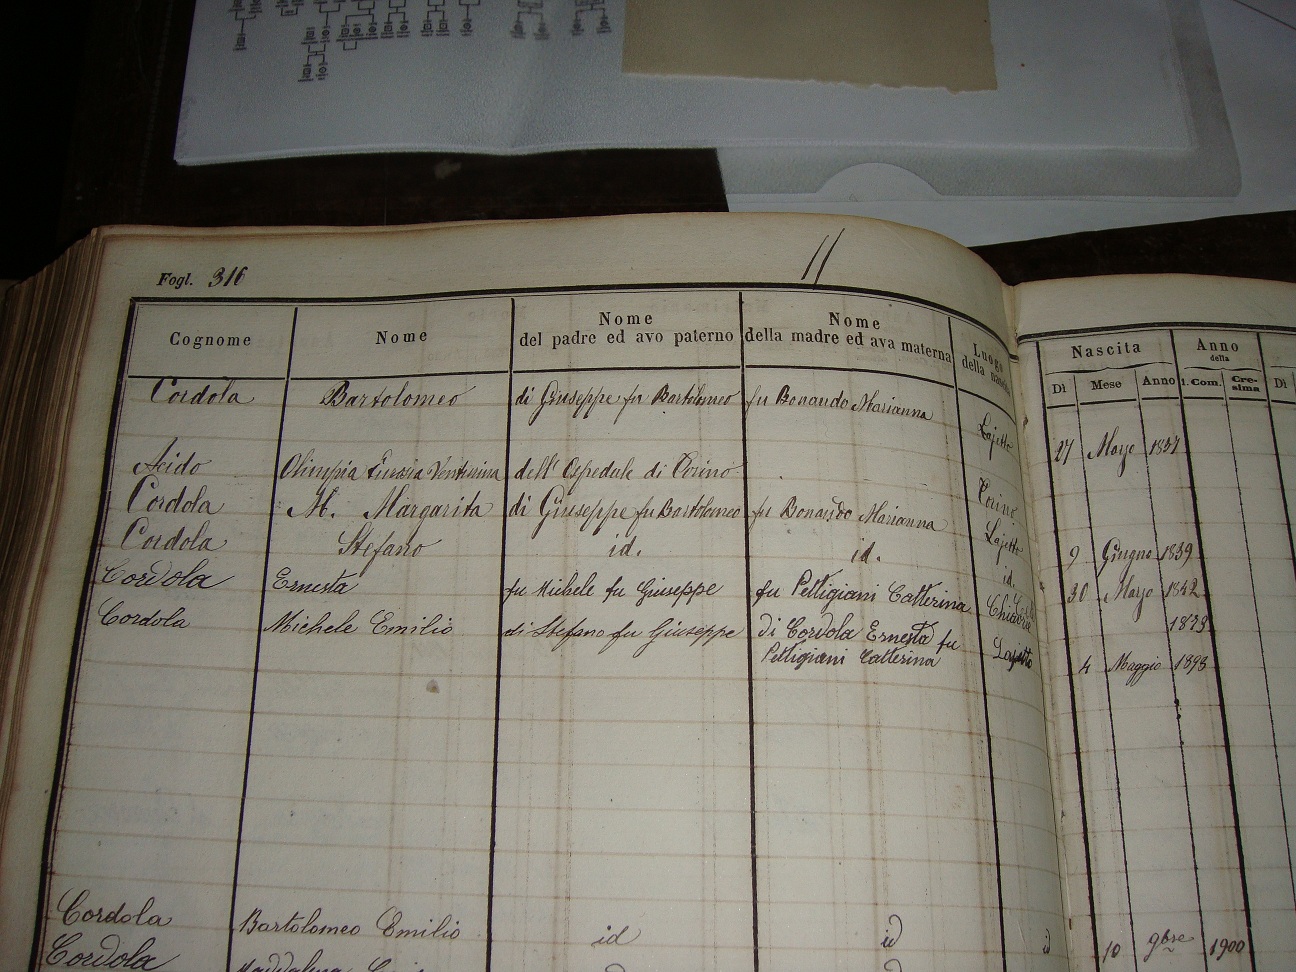 Fogl. 316
11
Cognome Nome Nome del padre ed avo paterno Nome della madre ed ava materna Luogo della Nascita Anno della
Dì Mese Anno 1. Com. Cresima Dì
Cordola Bartolomeo di Giuseppe fu Bartolomeo fu Bonaudo Marianna Lajetto 27 Marzo 1837
Olimpia Venturina dell' Ospedale di Torino Torino
Cordola M. Margarita di Giuseppe fu Bartolomeo fu Bonaudo Marianna Lajetto 9 Giugno 1839
Cordola Stefano id. id. id. 30 Marzo 1842
Cordola Ernesta fu Michele fu Giuseppe fu Pettigiani Catterina 1873
Cordola Michele Emilio di Stefano fu Giuseppe di Cordola Ernesta fu Lajetto 4 Maggio 1898
Pettigiani Catterina
Cordola Bartolomeo Emilio id id id 10 9bre 1900
Cordola